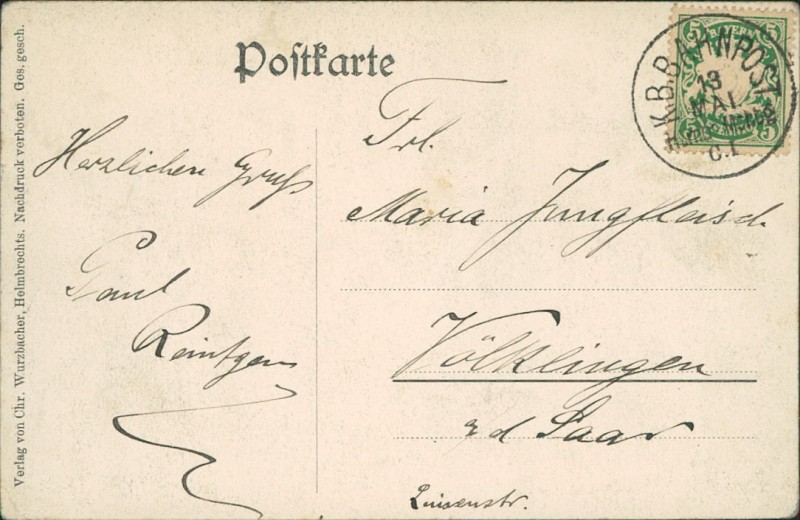 Postkarte
Verlag von Chr. Wurzbacher, Helmbrechts. Nachdruck verboten. Ges. gesch.
5 BAYERN 5
5 5
K.B.BAHNPOST
13
MAI
C.I
Herzlichen Gruß
Paul
Reintgen
Frl.
Maria Jungfleisch
Völklingen
a/d Saar
Luisenstr.